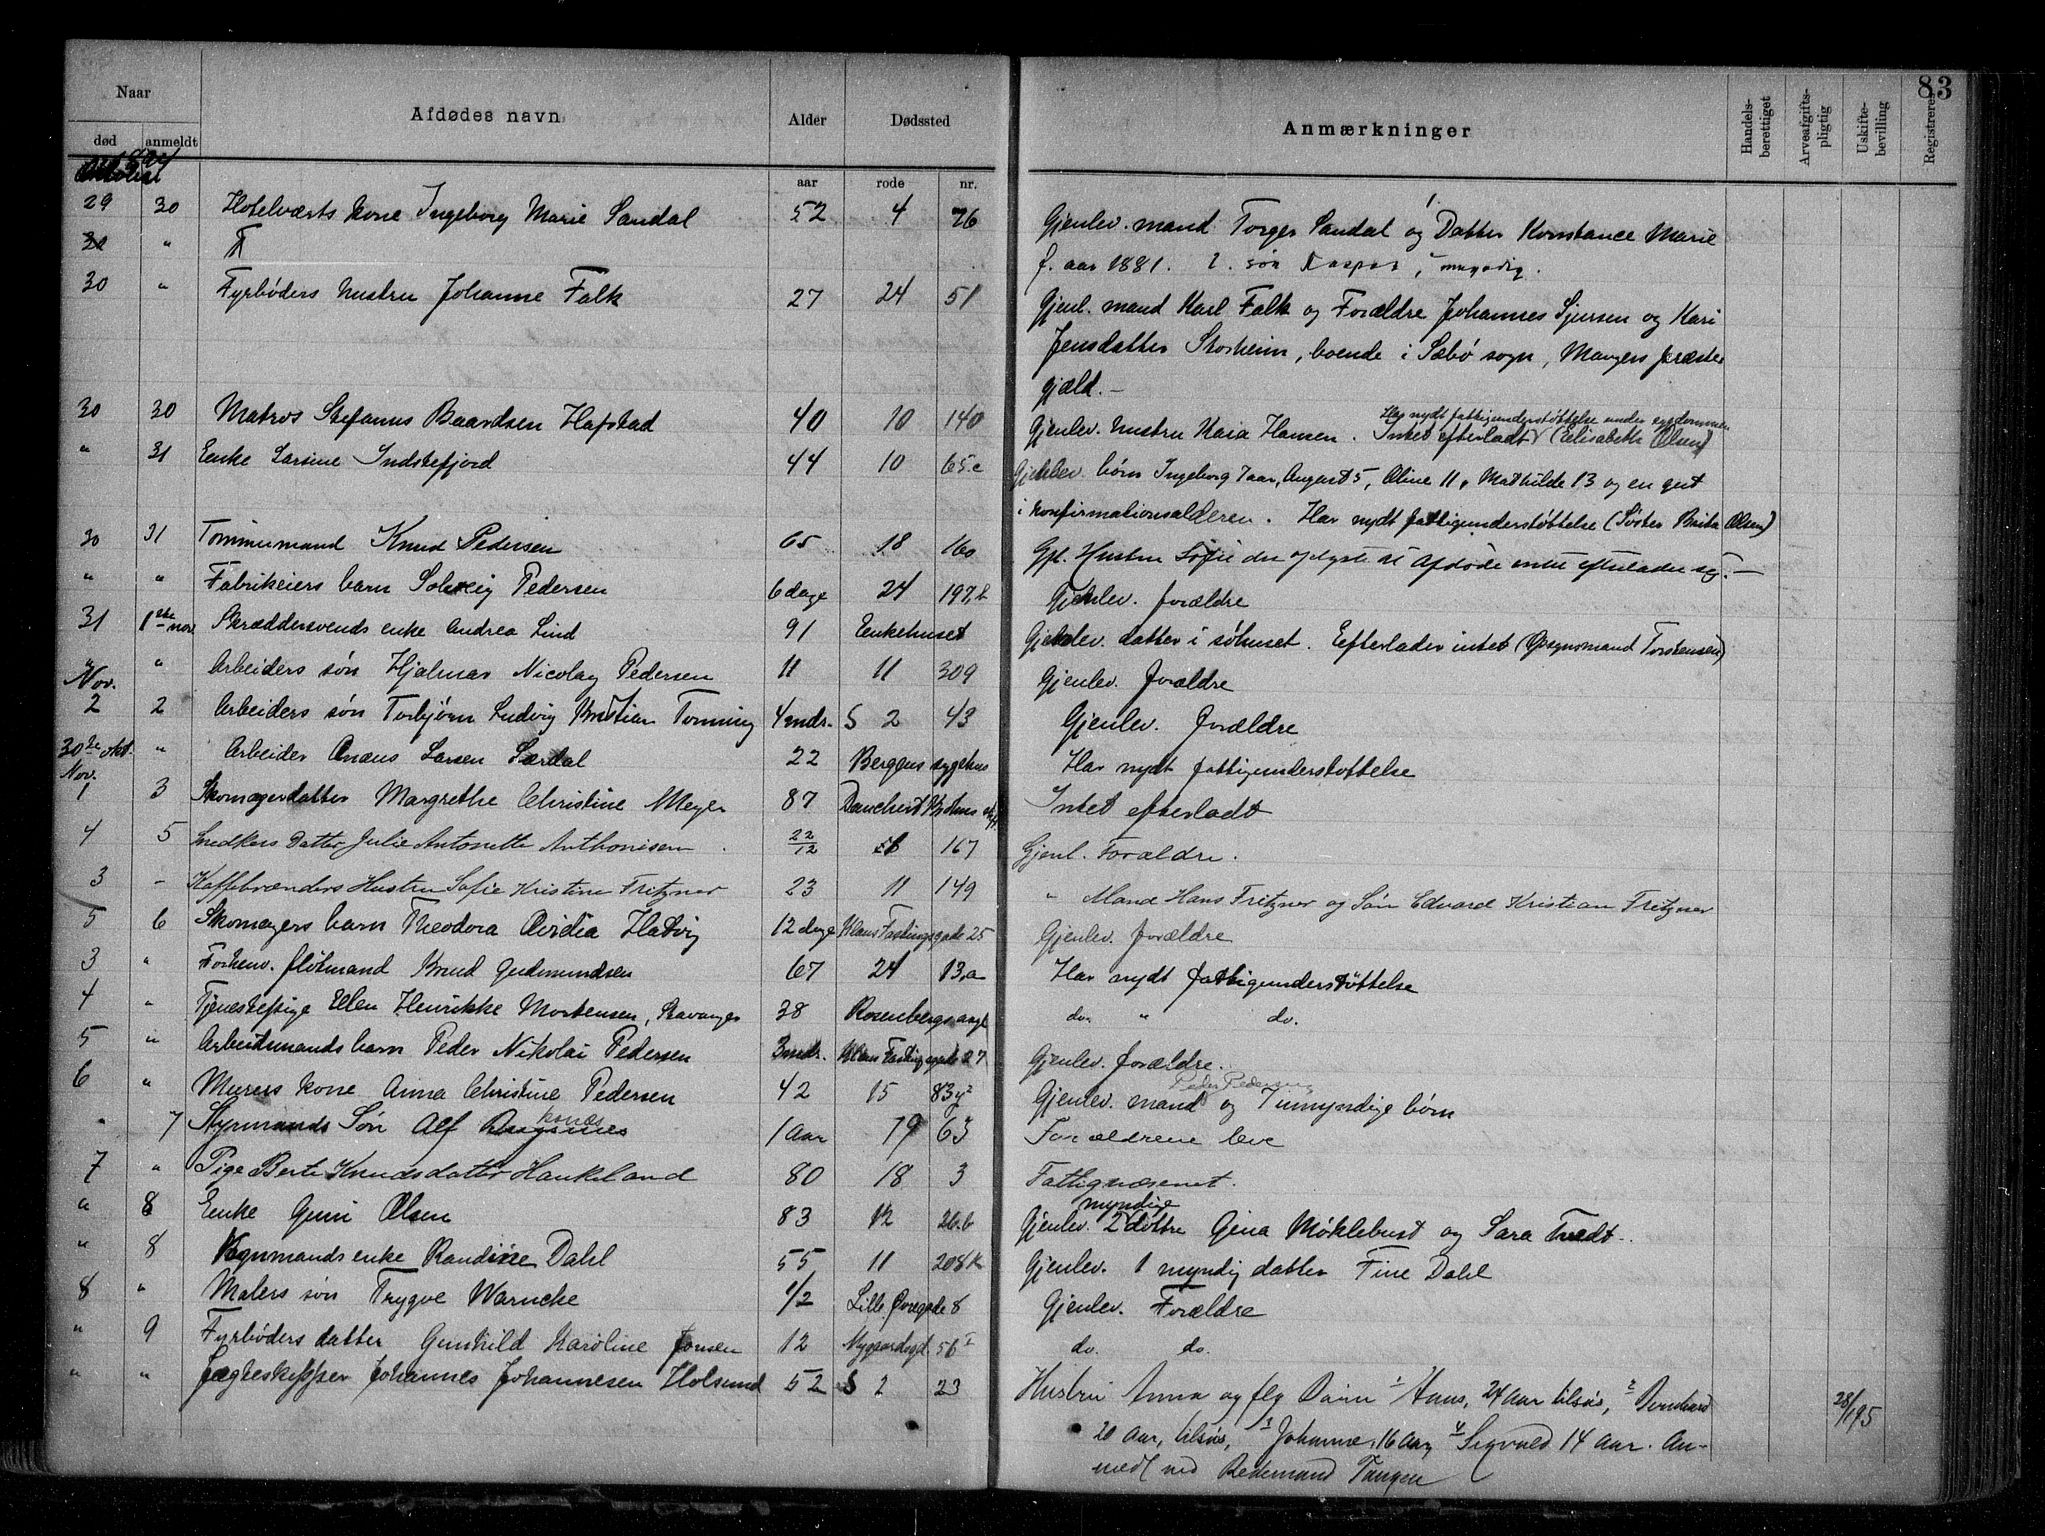 83
Naar
død anmeldt
Afdødes navn
Alder
aar
Dødssted
rode nr.
Anmærkninger
Handels-berettiget
Arveafgifts-pligtig
Uskifte-bevilling
Registreret
29 30 Hotelværts kone Ingeborg Marie Sandal 52 4 76 Gjenlev. mand Torger Sandal og Datter Konstance Marie
f. aar 1881. 2. søn Kaspar, umyndig.
30 " Fyrbøders hustru Johanne Falk 27 24 51 Gjenl. mand Karl Falk og Forældre Johannes Sjursen og Kari
Jensdatter Storheim, boende i Sæbø sogn, Mangers præste
gjæld. —
30 30 Matros Stefanus Baardsen Hafstad 40 10 140 Gjenlev. hustru Kaia Hansen. Intet efterladt (Elisabeth Olsen)
Har nydt fattigunderstøttelse under sygdommen
" 31 Enke Larsine Indstefjord 44 10 65.c Gjenlev. børn Ingeborg 7 aar, August 5, Oline 11, Mathilde 13 og en gut
i konfirmationsalderen. Har nydt fattigunderstøttelse (Søster Brita Olsen)
30 31 Tømmermand Knud Pedersen 65 18 160 Gjl. Hustru Sofie der oplyste at Afdøde intet efterlader sig. —
" " Fabrikeiers barn Solveig Pedersen 6 dage 24 197,b Gjenlev. forældre
31 1ste nov. Skræddersvends enke Andrea Lind 91 Enkehuset Gjenlev. datter i søhuset. Efterlader intet (Opsynsmand Torstensen)
" " Arbeiders søn Hjalmar Nicolay Pedersen 11 11 309 Gjenlev. forældre
Nov.
2 2 Arbeiders søn Torbjørn Ludvig Kristian Tonning 4 mdr. S 2 43 Gjenlev. forældre
30te okt. " Arbeider Anæus Larsen Særdal 22 Bergens sygehus Har nydt fattigunderstøttelse
Nov.
1 3 Skomagerdatter Margrethe Christine Meyer 87 Danchert Krohns st. Intet efterladt
4 5 Snedkers Datter Julie Antonette Anthonisen 22/12 16 167 Gjenl. Forældre.
3 - Kaffebrænders Hustru Sofie Kristine Fritzner 23 11 149 " Mand Hans Fritzner og Søn Edvard Kristian Fritzner
5 6 Skomagers barn Theodora Hatvig 12 dage Klaus Fastingsgade 25 Gjenlev. forældre
3 " Forhenv. fløtmand Knud Gudmundsen 67 24 13,a Har nydt fattigunderstøttelse
4 " Tjenestepige Ellen Henrikke Mortensen, Stavanger 28 Rosenbergs do. " do.
5 " Arbeidsmands barn Peder Nikolai Pedersen 3 mdr. Klaus Fastingsgade 27 Gjenlev. forældre.
6 " Murers kone Anna Christine Pedersen 42 15 83 Gjenlev. mand Peder Pedersen og 7 umyndige børn
" 7 Styrmands Søn Alf 1 Aar 19 63 Forældrene leve
7 " Pige Berte Knudsdatter Haukeland 80 18 3 Fattigvæsenet.
" 8 Enke Guri Olsen 83 12 26.b Gjenlev. 2 myndige døttre Gina Møklebust og Sara Tvedt.
" 8 Vognmands enke Randine Dahl 55 11 208k Gjenlev. 1 myndig datter Fine Dahl
8 " Malers søn Trygve Warncke 1/2 Lille Øvregade 8 Gjenlev. Forældre
" 9 Fyrbøders datter Gunhild Karoline Jonsen 12 Nygaardsgd. 56 do. do.
" " Jægteskipper Johannes Johannesen Holsund 52 S 2 23 Hustru Anna og flg Børn 1 Hans, 24 Aar tilsøs, 2 Bernhard 28/1 95
20 Aar, tilsøs, 3 Johanne, 16 Aar, 4 Sigvald 14 Aar. An-
medl ved Rodemand Tangen